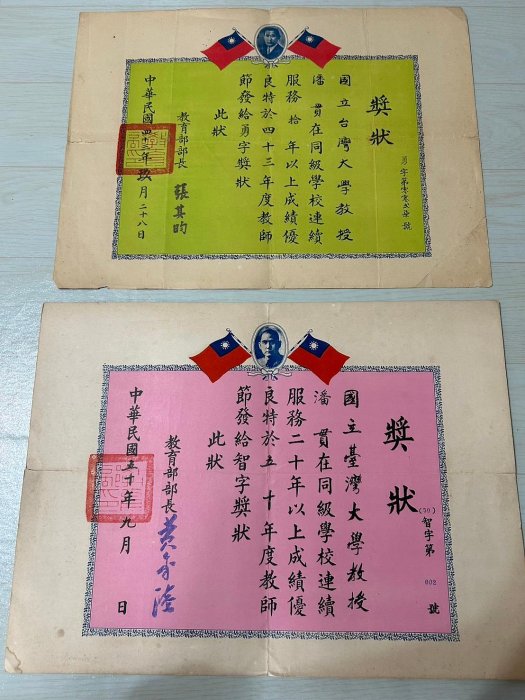 獎狀
勇字第
號
國立台灣大學教授
潘貫在同級學校連續
服務拾年以上成績優
良特於四十三年度教師
節發給勇字獎狀
此狀
教育部部長 張其昀
中華民國四十三年玖月二十八日
獎狀
(50)智字第002號
國立臺灣大學教授
潘貫在同級學校連續
服務二十年以上成績優
良特於五十年度教師
節發給智字獎狀
此狀
教育部部長 黃季陸
中華民國五十年九月 日